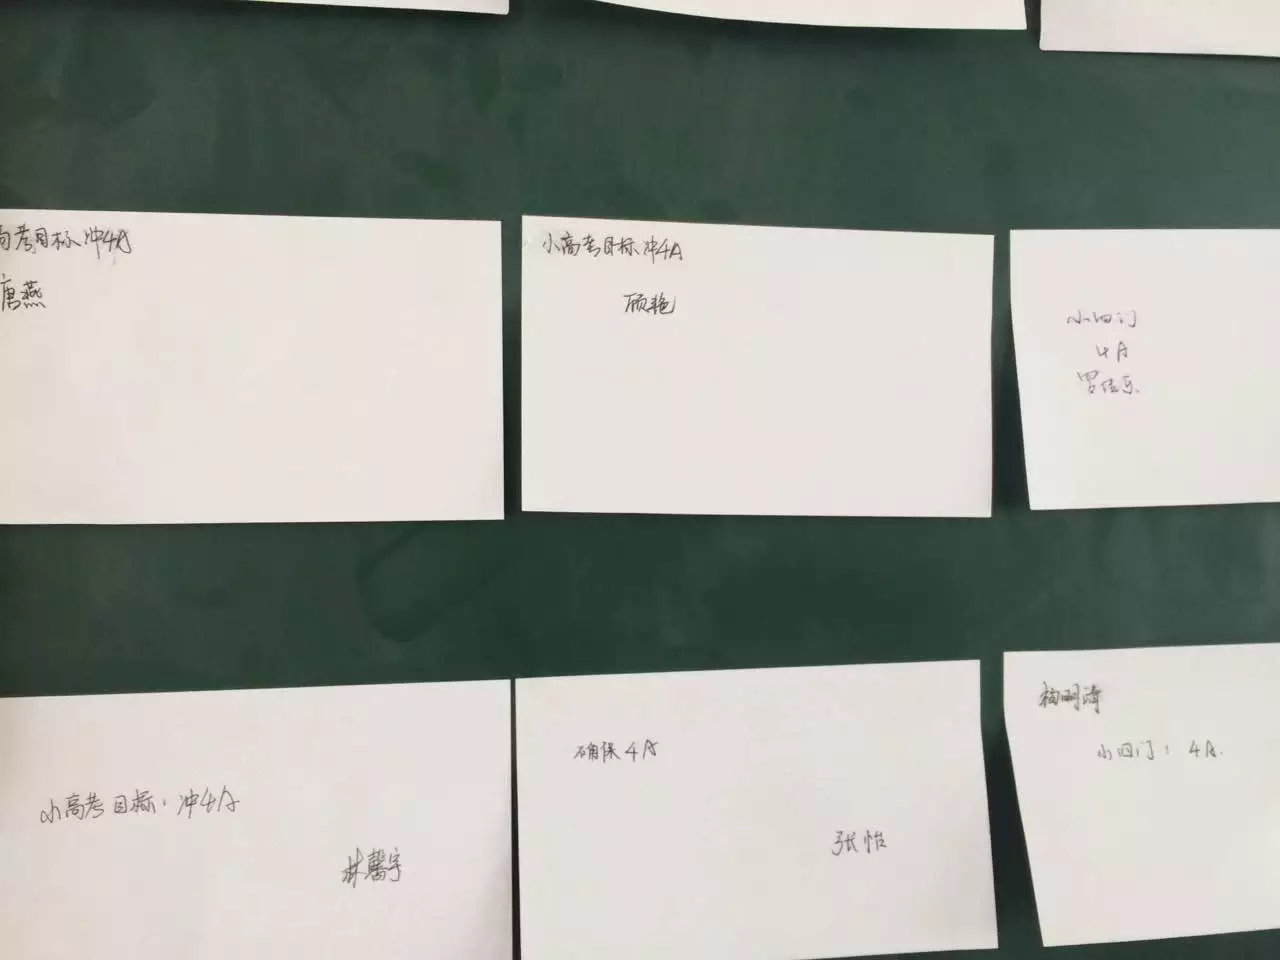 高考目标冲4A
唐燕
小高考目标冲4A
顾艳
小四门
4A
罗佳乐.
小高考目标：冲4A
林馨宇
确保4A
张怡
杨明海
小四门：4A.